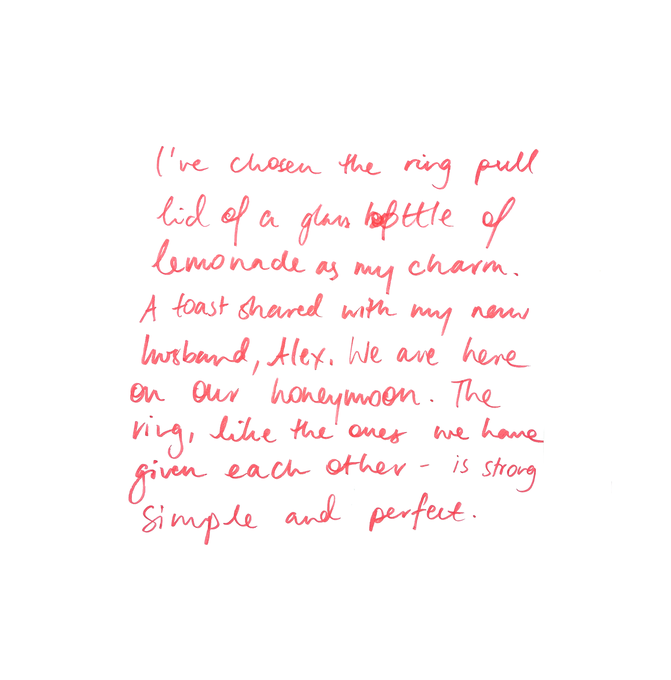 I've chosen the ring pull
lid of a glass bottle of
lemonade as my charm.
A toast shared with my new
husband, Alex. We are here
on our honeymoon. The
ring, like the ones we have
given each other - is strong
simple and perfect.